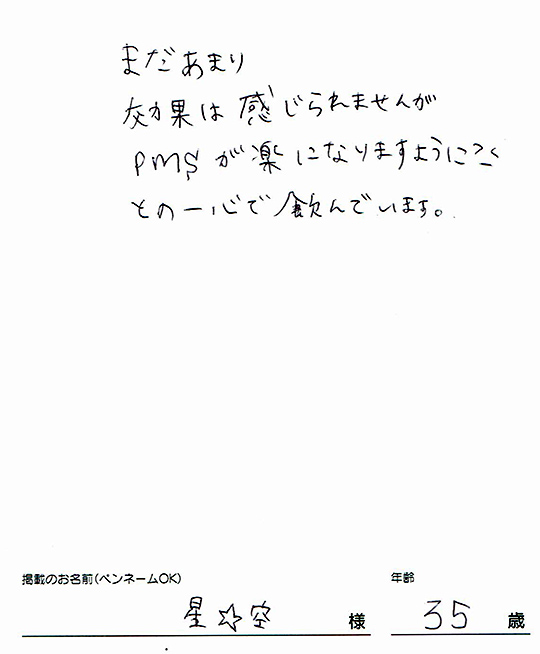 まだあまり
効果は感じられませんが
PMSが楽になりますようにと
その一心で飲んでいます。
掲載のお名前(ペンネームOK) 年齢
星☆空 様 35 歳